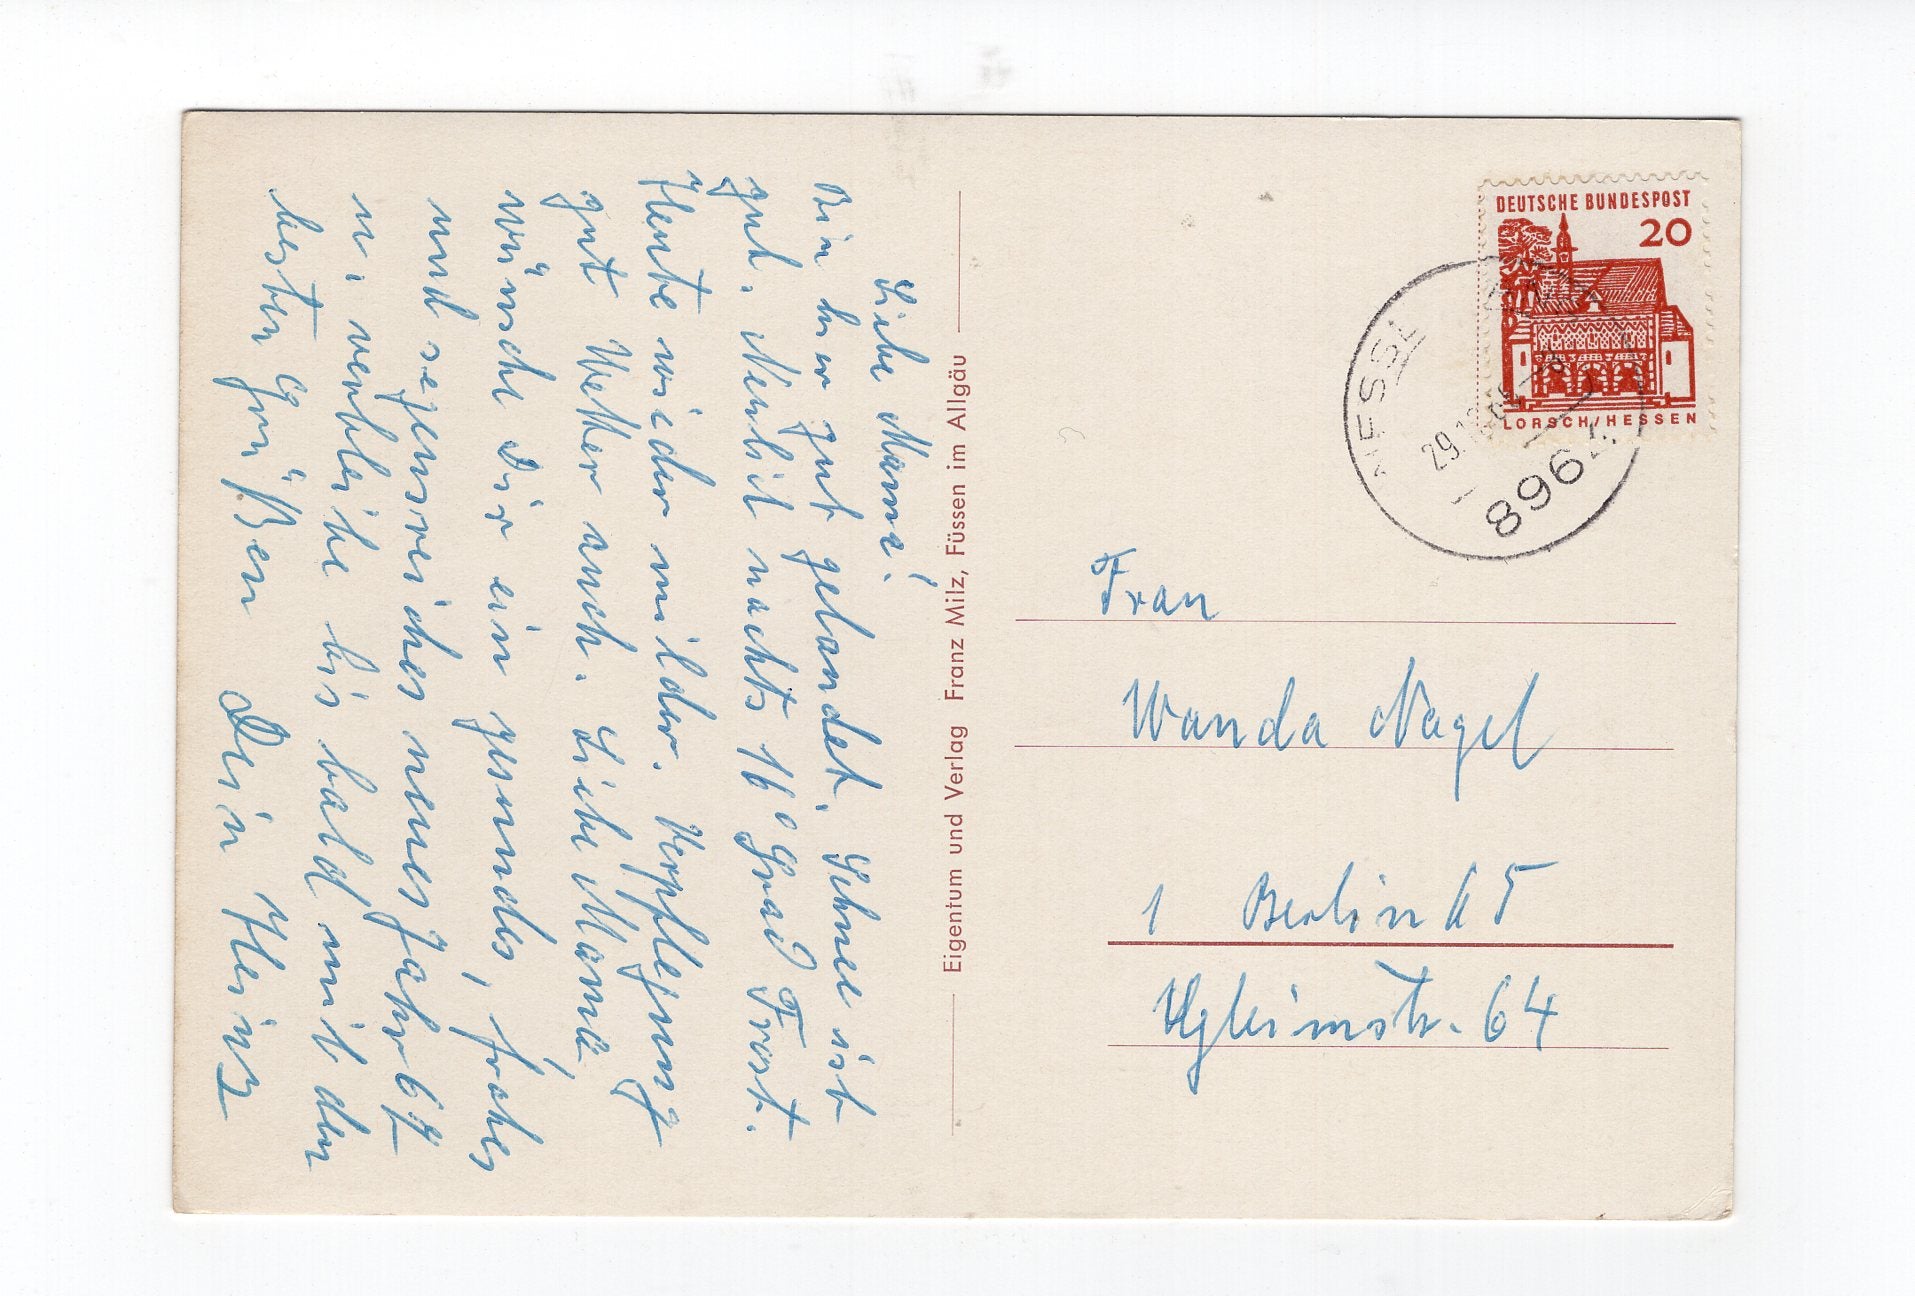 Liebe Mama!
Bin hier gut gelandet. Schnee ist
gut. Neulich nachts 16° Grad Frost.
Heute wieder milder. Verpflegung
gut Wetter auch. Liebe Mama,
wünsche Dir ein gesundes, frohes
und segensreiches neues Jahr 67
u. verbleibe bis bald mit den
besten Grüßen Dein Heinz
Eigentum und Verlag Franz Milz, Füssen im Allgäu
DEUTSCHE BUNDESPOST
20
LORSCH/HESSEN
NESSL
29.12.
896
Frau
Wanda Nagel
1 Berlin 65
64